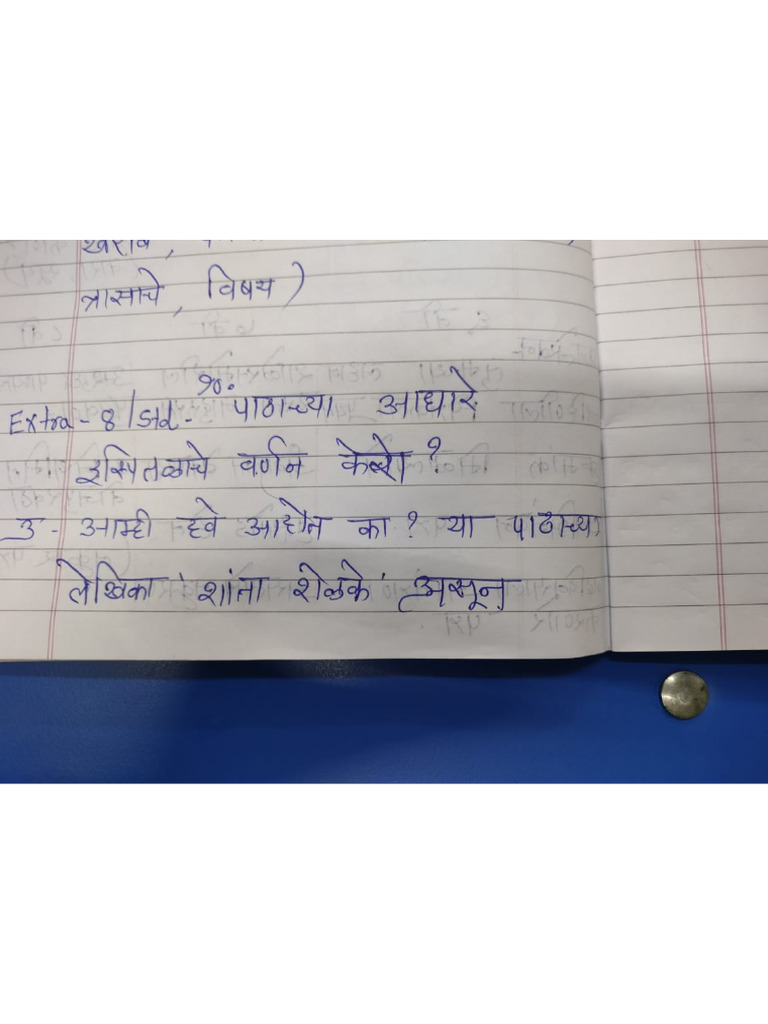 त्रासाचे, विषय)
प्र०
Extra - 8/ - पाठाच्या आधारे
इस्पितळाचे वर्णन करो?
उ - आम्ही हवे आहोत का? या पाठाच्या
लेखिका 'शांता शेळके' असून